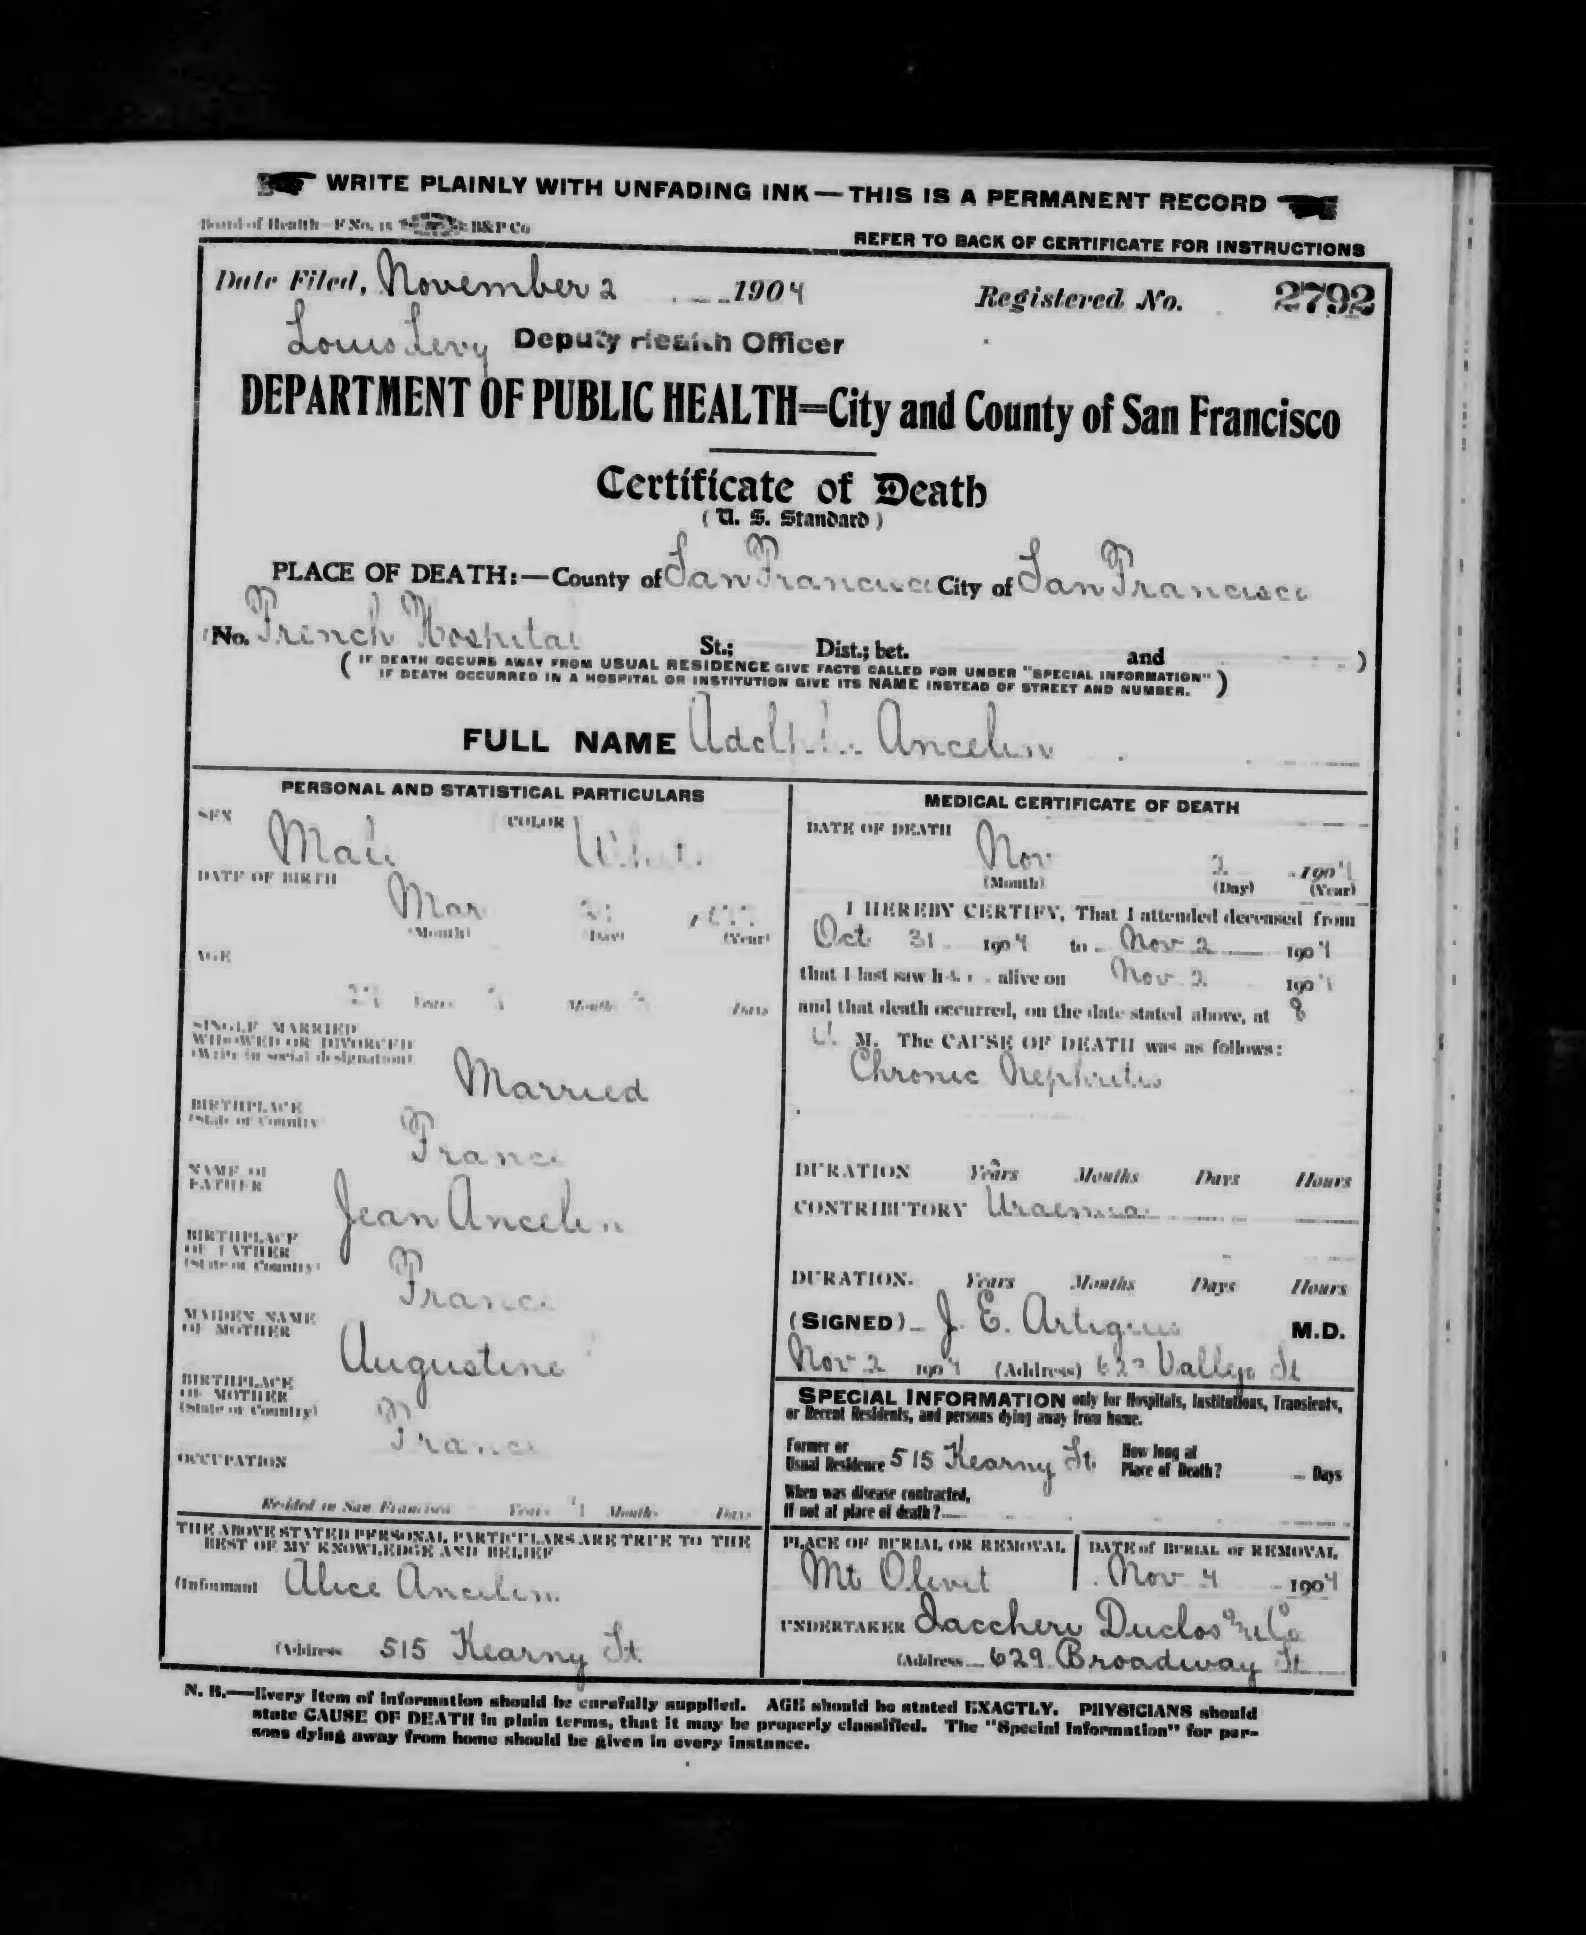 WRITE PLAINLY WITH UNFADING INK — THIS IS A PERMANENT RECORD
Board of Health—F No. 15 B&P Co
REFER TO BACK OF CERTIFICATE FOR INSTRUCTIONS
Date Filed, November 2 1904 Registered No. 2792
Louis Levy Deputy Health Officer
DEPARTMENT OF PUBLIC HEALTH=City and County of San Francisco
Certificate of Death
( U. S. Standard )
PLACE OF DEATH:—County of San Francisco City of San Francisco
(No. French Hospital St.; Dist.; bet. and )
( IF DEATH OCCURS AWAY FROM USUAL RESIDENCE GIVE FACTS CALLED FOR UNDER "SPECIAL INFORMATION"
IF DEATH OCCURRED IN A HOSPITAL OR INSTITUTION GIVE ITS NAME INSTEAD OF STREET AND NUMBER. )
FULL NAME Ancelin
PERSONAL AND STATISTICAL PARTICULARS
SEX Male COLOR White
DATE OF BIRTH Mar
(Month) (Day) (Year)
AGE
Years Months Days
SINGLE MARRIED
WIDOWED OR DIVORCED
(Write in social designation)
Married
BIRTHPLACE
(State or Country)
France
NAME OF
FATHER
Jean Ancelin
BIRTHPLACE
OF FATHER
(State or Country)
France
MAIDEN NAME
OF MOTHER
Augustine
BIRTHPLACE
OF MOTHER
(State or Country)
France
OCCUPATION
Resided in San Francisco Years Months Days
THE ABOVE STATED PERSONAL PARTICULARS ARE TRUE TO THE
BEST OF MY KNOWLEDGE AND BELIEF
(Informant Alice Ancelin
(Address 515 Kearny St
MEDICAL CERTIFICATE OF DEATH
DATE OF DEATH Nov 2 1904
(Month) (Day) (Year)
I HEREBY CERTIFY, That I attended deceased from
Oct 31 1904 to Nov 2 1904
that I last saw h alive on Nov 2 1904
and that death occurred, on the date stated above, at 8
M. The CAUSE OF DEATH was as follows:
Chronic Nephritis
DURATION Years Months Days Hours
CONTRIBUTORY Uraemia
DURATION. Years Months Days Hours
(SIGNED) J. E. M.D.
Nov 2 1904 (Address) Vallejo St
SPECIAL INFORMATION only for Hospitals, Institutions, Transients,
or Recent Residents, and persons dying away from home.
Former or
Usual Residence 515 Kearny St. How long at
Place of Death? Days
When was disease contracted,
If not at place of death?
PLACE OF BURIAL OR REMOVAL DATE of BURIAL or REMOVAL
Mt Olivet Nov 4 1904
UNDERTAKER Iaccheri Duclos and Co
(Address 629 Broadway St
N. B.—Every item of information should be carefully supplied. AGE should be stated EXACTLY. PHYSICIANS should
state CAUSE OF DEATH in plain terms, that it may be properly classified. The "Special Information" for per-
sons dying away from home should be given in every instance.